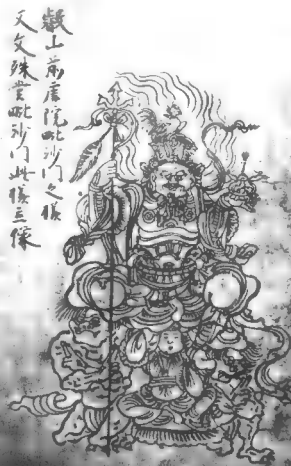 叡山前唐院毗沙門之様
又文殊堂毗沙門此様三像